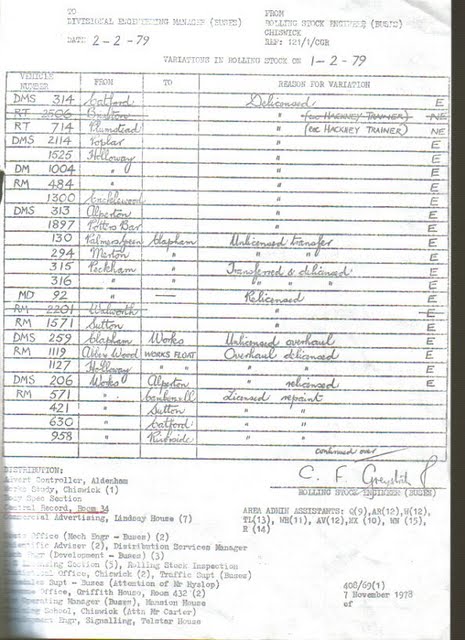 TO
DIVISIONAL ENGINEERING MANAGER (BUSES)
FROM
ROLLING STOCK ENGINEER (BUSES)
CHISWICK
DATE 2-2-79
REF: 121/1/CGR
VARIATIONS IN ROLLING STOCK ON 1-2-79
VEHICLE NUMBER FROM TO REASON FOR VARIATION
DMS 314 Catford Delicensed E
RT 2506 " (exc HACKNEY TRAINER) NE
RT 714 Plumstead " (exc HACKNEY TRAINER) NE
DMS 2114 Poplar " E
1525 Holloway " E
DM 1004 " " E
RM 484 " " E
1300 Cricklewood " E
DMS 313 Alperton " E
1897 Potters Bar " E
130 Palmers Green Clapham Unlicensed transfer E
294 Merton " " " E
315 Peckham " Transferred & delicensed E
316 " " " " " E
MD 92 " — Relicensed E
RM 2201 Walworth " E
RM 1571 Sutton " E
DMS 259 Clapham Works Unlicensed overhaul E
RM 1119 Abbey Wood WORKS FLOAT Overhaul delicensed E
1127 Holloway " " " E
DMS 206 Works Alperton " relicensed E
RM 571 " Camberwell Licensed repaint
421 " Sutton " "
630 " Catford " "
958 " " "
continued over
C. F.
ROLLING STOCK ENGINEER (BUSES)
DISTRIBUTION:
Advert Controller, Aldenham
Works Study, Chiswick (1)
Body Spec Section
Central Record, Room 34
Commercial Advertising, Lindsey House (7)
AREA ADMIN ASSISTANTS: Q(9), AR(12), W(12),
TL(13), WH(11), AV(12), NX (10), WN (15),
R (14)
Office (Mech Engr - Buses) (2)
Scientific Adviser (2), Distribution Services Manager
Engr (Development - Buses) (3)
Section (5), Rolling Stock Inspection
Office, Chiswick (2), Traffic Supt (Buses)
Schedules Supt - Buses (Attention of Mr Hyslop)
Office, Griffith House, Room 432 (2)
Operating Manager (Buses), Mansion House
School, Chiswick (Attn Mr Carter)
Engr, Signalling, Telstar House
408/69(1)
7 November 1978
ef